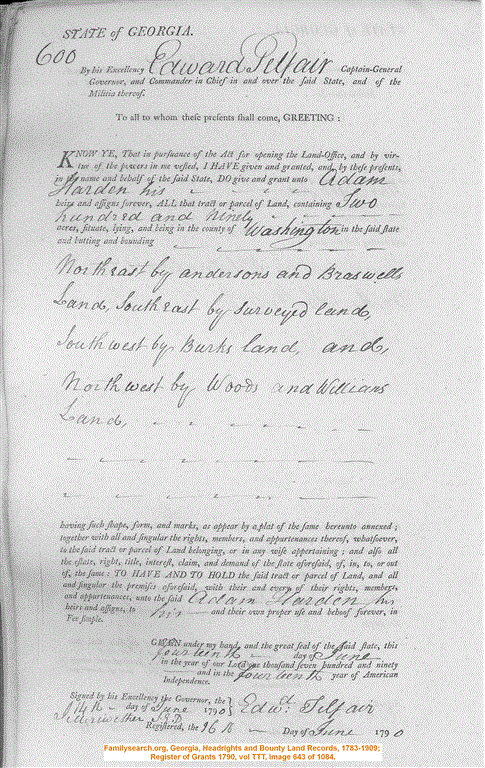 STATE of GEORGIA.
600
By his Excellency Edward Telfair Captain-General
Governor, and Commander in Chief in and over the said State, and of the
Militia thereof.
To all to whom these presents shall come, GREETING:
KNOW YE, That in pursuance of the Act for opening the Land-Office, and by vir-
tue of the powers in me vested, I HAVE given and granted, and, by these presents,
in the name and behalf of the said State, DO give and grant unto Adam
Harden his
heirs and assigns forever, ALL that tract or parcel of Land, containing Two
hundred and Ninety
acres, situate, lying, and being in the county of Washington in the said state
and butting and bounding
North East by andersons and Braswells
Land, South East by Surveyed land,
South west by Burks land, and,
North west by Woods and Willians
Land,
having such shape, form, and marks, as appear by a plat of the same hereunto annexed;
together with all and singular the rights, members, and appurtenances thereof, whatsoever,
to the said tract or parcel of Land belonging, or in any wise appertaining; and also all
the estate, right, title, interest, claim, and demand of the state aforesaid, of, in, to, or out
of, the same: TO HAVE AND TO HOLD the said tract or parcel of Land, and all
and singular the premises aforesaid, with their and every of their rights, members,
and appurtenances, unto the said Adam Harden his
heirs and assigns, to his and their own proper use and behoof forever, in
Fee simple.
GIVEN under my hand, and the great seal of the said state, this
fourteenth day of June
in the year of our Lord one thousand seven hundred and ninety
and in the fourteenth year of American
Independence.
Signed by his Excellency the Governor, the
14th day of June 1790 Edwd. Telfair
J Meriwether S.E.D.
Registered, the 16th Day of June 1790
Familysearch.org, Georgia, Headrights and Bounty Land Records, 1783-1909;
Register of Grants 1790, vol TTT, image 643 of 1084.